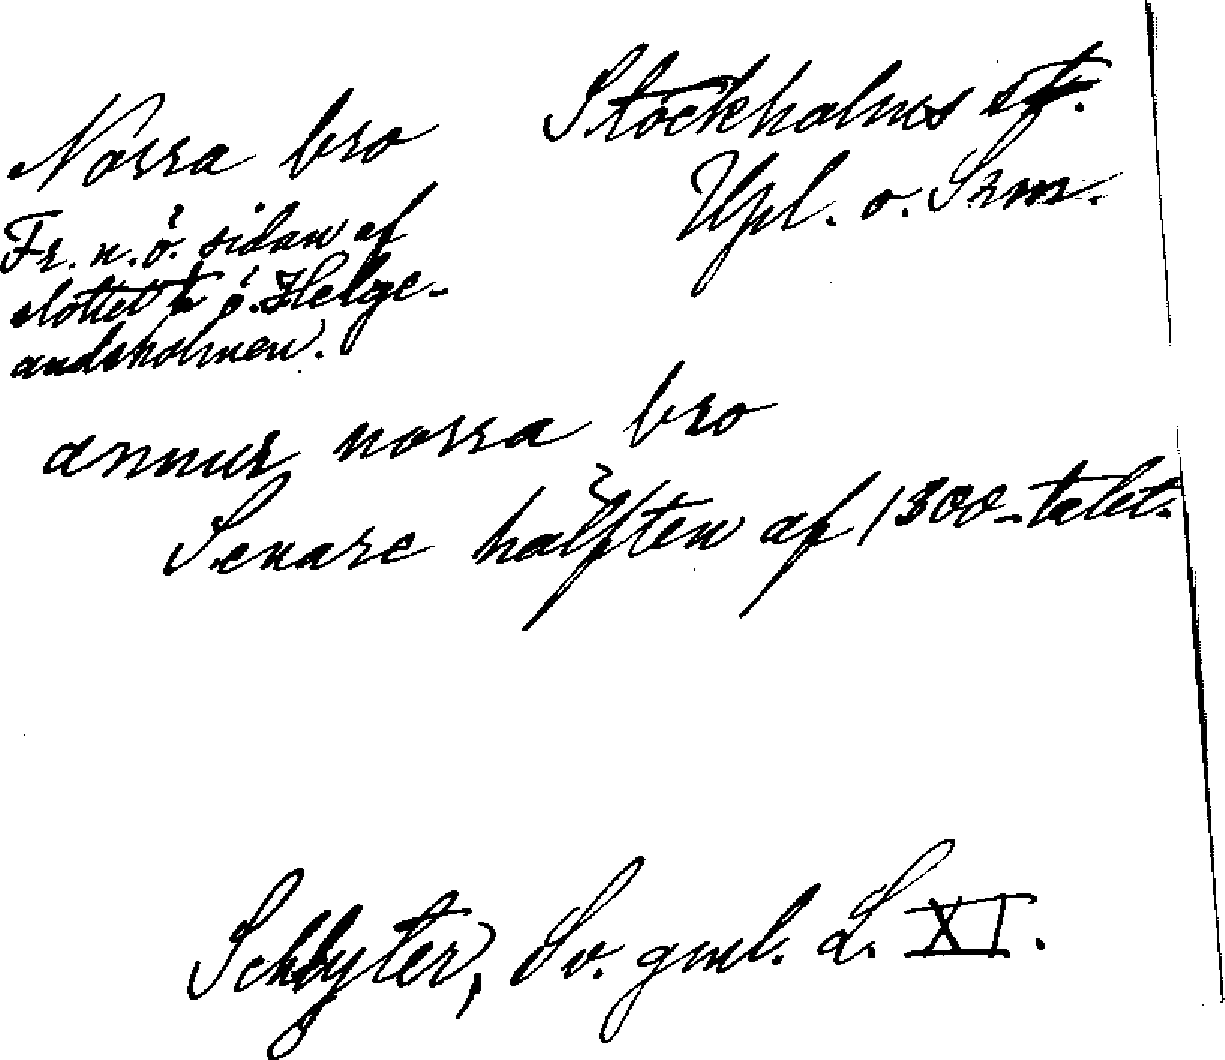 Norra bro
Stockholms st.
Upl. o. Srm.
Fr. n. ö. sidan af
slottet t. ö. Helge-
andsholmen.
annur norra bro
Senare hälften af 1300-talet.
Schlyter, Sv. gml. L. XI.